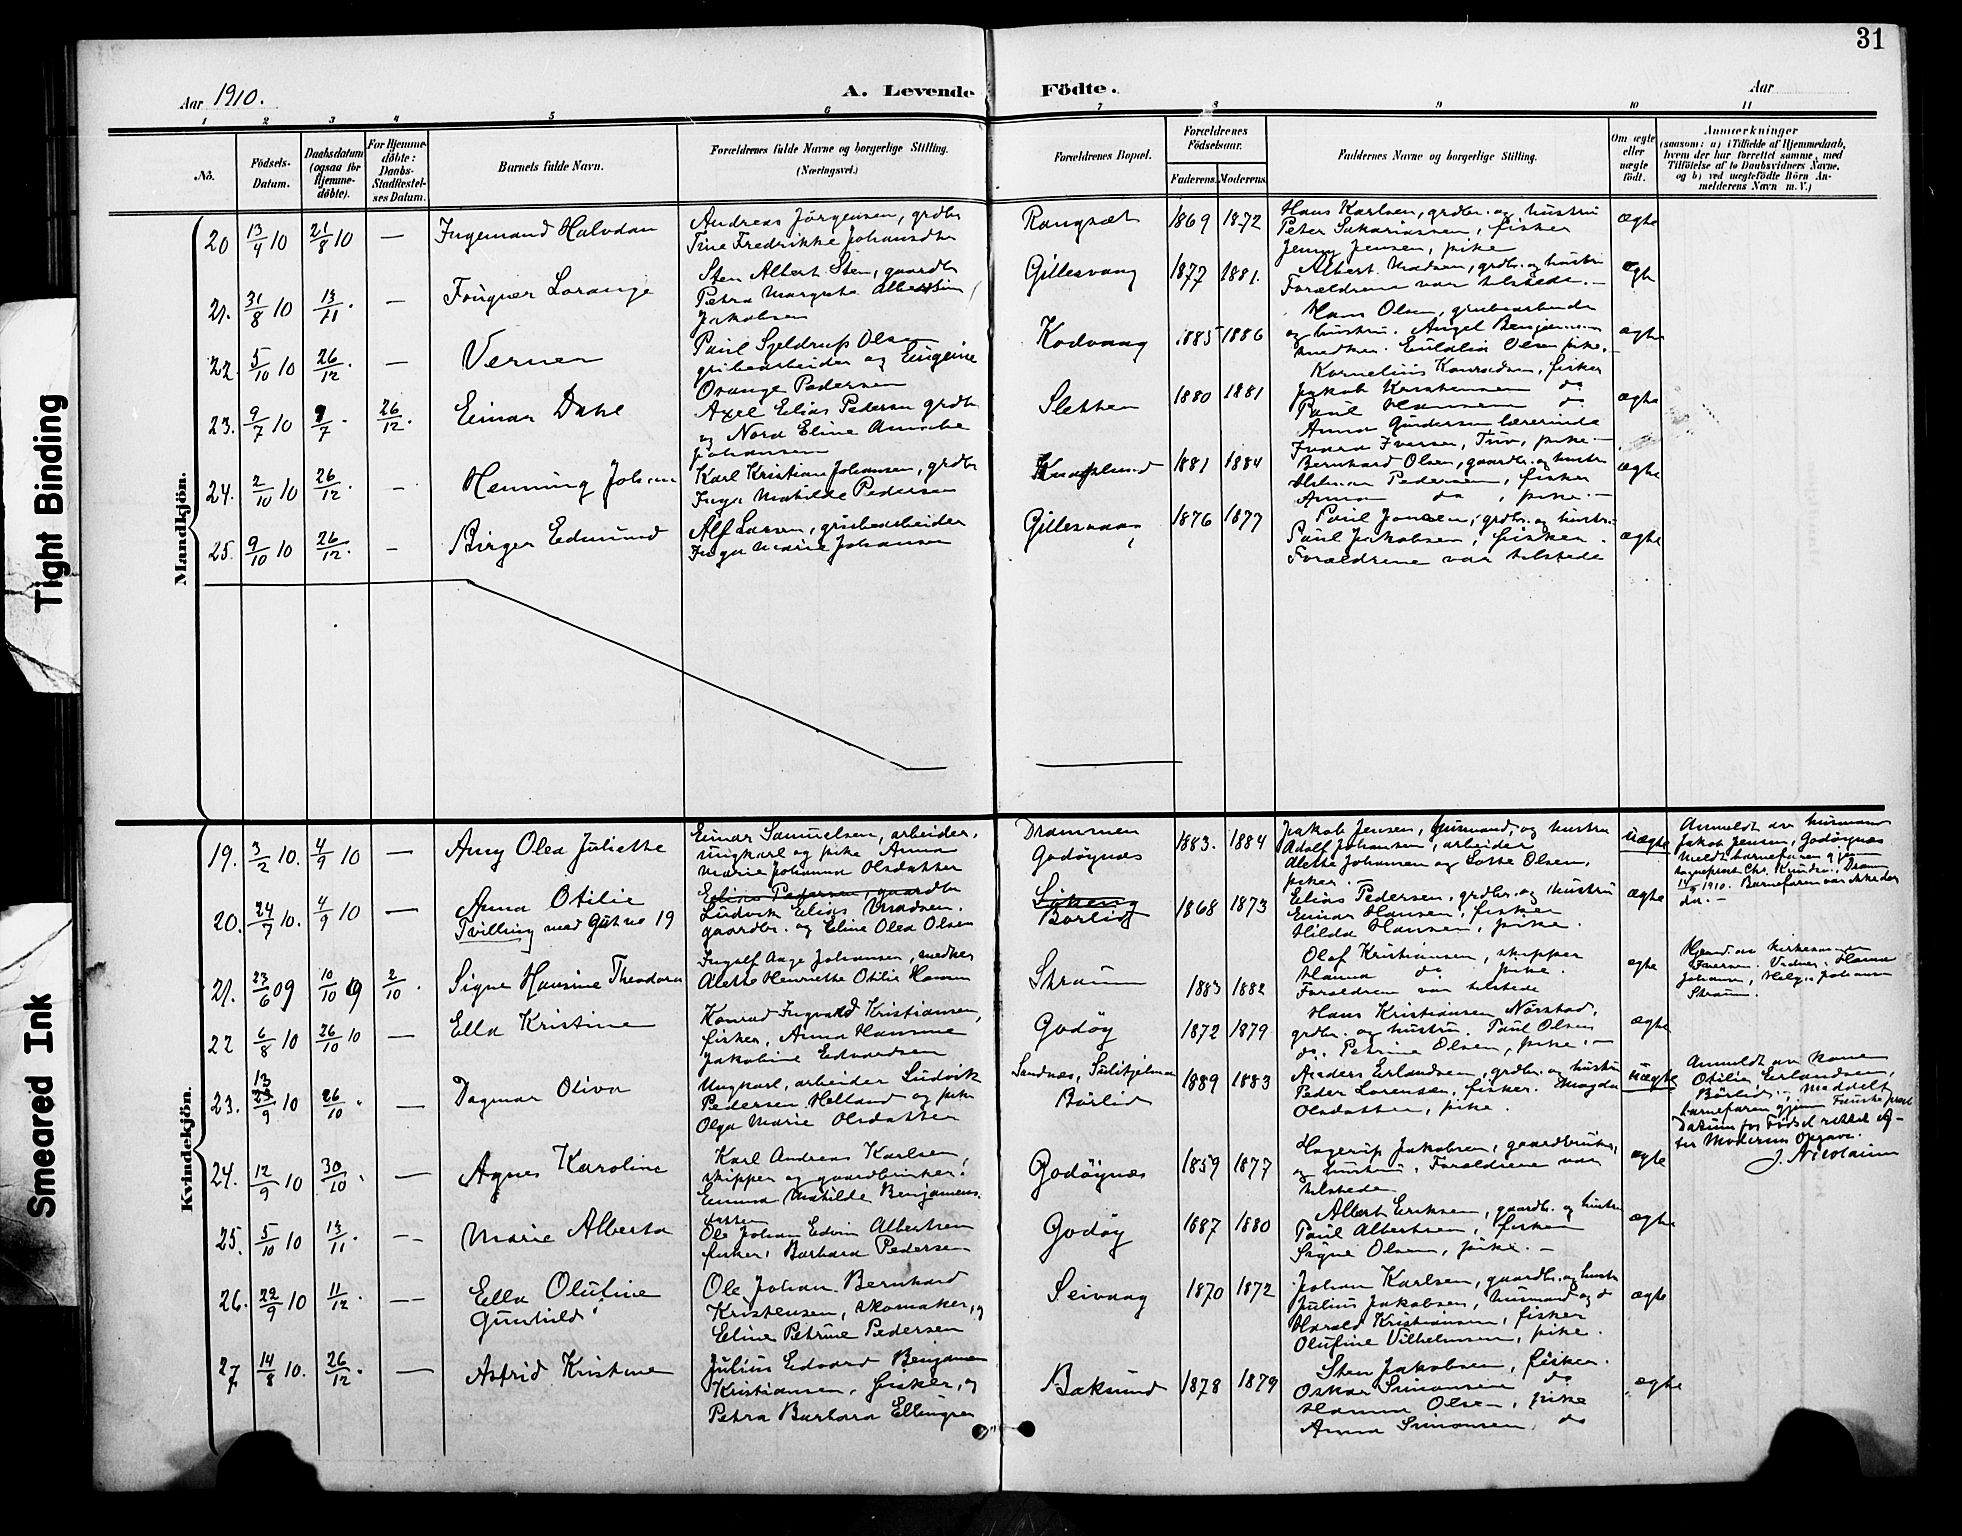 31
Aar 1910.
A. Levende Födte.
Aar
1 2 3 4 5 6 7 8 9 10 11
No.
Födsels-Datum.
Daabsdatum (ogsaa for Hjemmedöbte).
For Hjemmedöbte: Daabs-Stadfæstelses Datum.
Barnets fulde Navn.
Forældrenes fulde Navne og borgerlige Stilling. (Næringsvei.)
Forældrenes Bopæl.
Forældrenes Födselsaar.
Faderens. Moderens.
Faddernes Navne og borgerlige Stilling.
Om ægte eller uægte födt.
Anmærkninger
(saasom: a) i Tilfælde af Hjemmedaab, hvem der har forrettet samme, med Tilföielse af to Daabsvidners Navne, og b) ved uægtefödte Börn Anmelderens Navn m. V.)
Mandkjön.
20 13/4 10 21/8 10 — Ingemand Halvdan
Andreas Jörgensen, grdbr
Tine Fredrikke Johansdtr
Rangsæt 1869 1872
Hans Karlsen, grdbr. og hustru
Peter Sakariassen, fisker
Jenny Jensen, pike
ægte
21. 31/8 10 13/11 — Fougner Lorange
Sten Albert Sten, gaardbr
Petra Margrete
Jakobsen
Gillesvaag 1877 1881.
Albert Madsen, grdbr. og hustru
Forældrene var tilstede. —
ægte
22 5/10 10 26/12 . — Verner
Paul Sjeldrup Olsen
grubearbeider og Eugenie
Orange Pedersen
Kodvaag 1885 1886
Hans Olsen, grubearbeider
og hustru. Angel
snedker. Eulalia Olsen pike. —
ægte
23. 9/7 10 9/7 . 26/12 . Einar Dahl
Axel Elias Pedersen grdbr
og Nora Eline
Johansen
Sletten 1880 1881
Kornelius Konradsen, fisker
Jakob Kristensen do
Paul Hansen do
Anna Gundersen lærerinde
Iversen, Tuv, pike. —
ægte
24. 2/10 10 26/12 . — Henning Johan
Karl Kristian Johansen, grdbr
Inga Matilde Pedersen
Knaplund 1881 1884
Bernhard Olsen, gaardbr. og hustru
Pedersen, fisker
Anna do, pike. —
ægte
25. 9/10 10 26/12 . — Birger Edmund
Alf Larsen, grubearbeider
Inga Marie Johansen
Gillesvaag 1876 1877
Paul Jensen, grdbr. og hustru
Paul Jakobsen, fisker.
Forældrene var tilstede
ægte
Kvindekjön.
19. 3/2 10. 4/9 10 — Amy Olea Juliette
Einar Samuelsen, arbeider,
ungkarl og pike Anna
Marie Johanna Olsdatter
Drammen
Godöynæs
1883. 1884
Jakob Jensen, husmand, og hustru
Adolf Johansen, arbeider
Alette Johansen og Lotte Olsen,
piker.
Uægte
Anmeldt av husmand
Jakob Jensen, Godöynæs
Meldt barnefaren gjen
sogneprest Chr. Knudsen, Dram
14/9 1910. Barnefaren var ikke der
da. —
20. 24/7 10. 4/9 10 — Anna Otilie
Tvilling med Gut no 19
Elias Pedersen, gaardbr
Ludvik Elias Madsen.
gaardbr. og Eline Olea Olsen
Börlid 1868 1873
Elias Pedersen, grdbr. og hustru
Einar Hansen, fisker
Hilda Hansen, pike.
ægte
21. 23/6 09 10/10 09 2/10 . Signe Hansine Theodora
Ingolf Aage Johansen, snedker
Alette Henriette Otilie Hansen
Straum 1883 1882
Olaf Kristiansen, skipper
Hanna do pike.
Forældrene var tilstede
ægte
Hjemd. av kirkesanger
Iversen. Vidner: Hanna
Johansen, Helga Johansen
Straum.
22 6/8 10 26/10 10 — Ella Kristine
Konrad Ingvald Kristiansen,
fisker, Anna Hansine
Jakobine Edvardsen
Godöy 1872 1879
Hans Kristiansen Nörstad,
grdbr. og hustru. Paul Olsen
do. Petrine Olsen, pike. —
ægte
23. 13/9 10 26/10 . — Dagmar Oliva
Ungkarl, arbeider Ludvik
Pedersen Helland og pike
Olga Marie Olsdatter
Sandnæs, Sulitjelma
Börlid
1889 1883
Anders Erlandsen, grdbr. og hustru
Peder Lorensen, fisker. Magda
Olsdatter, pike.
Uægte
Anmeldt av kone
Otilie Erlandsen,
Börlid. Meddelt
barnefaren gjen Fauske prest
Datum for Födsel rettet ef-
ter Moderens Opgave.
J. Nicolaisen
24. 12/9 10 30/10 . — Agnes Karoline
Karl Andreas Karlsen,
skipper og gaardbruker.
Emma Matilde Benjamins
datter
Godöynæs 1859 1877
Hagerup Jakobsen, gaardbruker,
og hustru. Forældrene var
tilstede
ægte
25. 5/10 10 13/11 . — Marie Alberta
Ole Johan Edvin Albertsen
fisker, Barbara Pedersen
Godöy 1887 1880
Albert Eriksen, gaardbr. og hustru
Paul Albertsen, fisker
Signe Olsen, pike. —
ægte
26. 22/9 10 11/12 . — Ella Olufine
Gunhild
Ole Johan Bernhard
Kristensen, skomaker, og
Eline Petrine Pedersen
Seivaag 1870 1872
Johan Karlsen, gaardbr. og hustr
Julius Jakobsen, husmand og do
Harald Kristiansen, fisker
Olufine Vilhelmsen, pike.
ægte
27. 14/8 10. 26/12 . — Astrid Kristine
Julius Edvard Benjamin
Kristiansen, fisker, og
Petra Barbara Ellingsen
Baksund 1878 1879
Sten Jakobsen, fisker.
Oskar Simonsen do
Hanna Olsen, pike
Anna Simonsen, do
ægte
Tight Binding
Smeared Ink